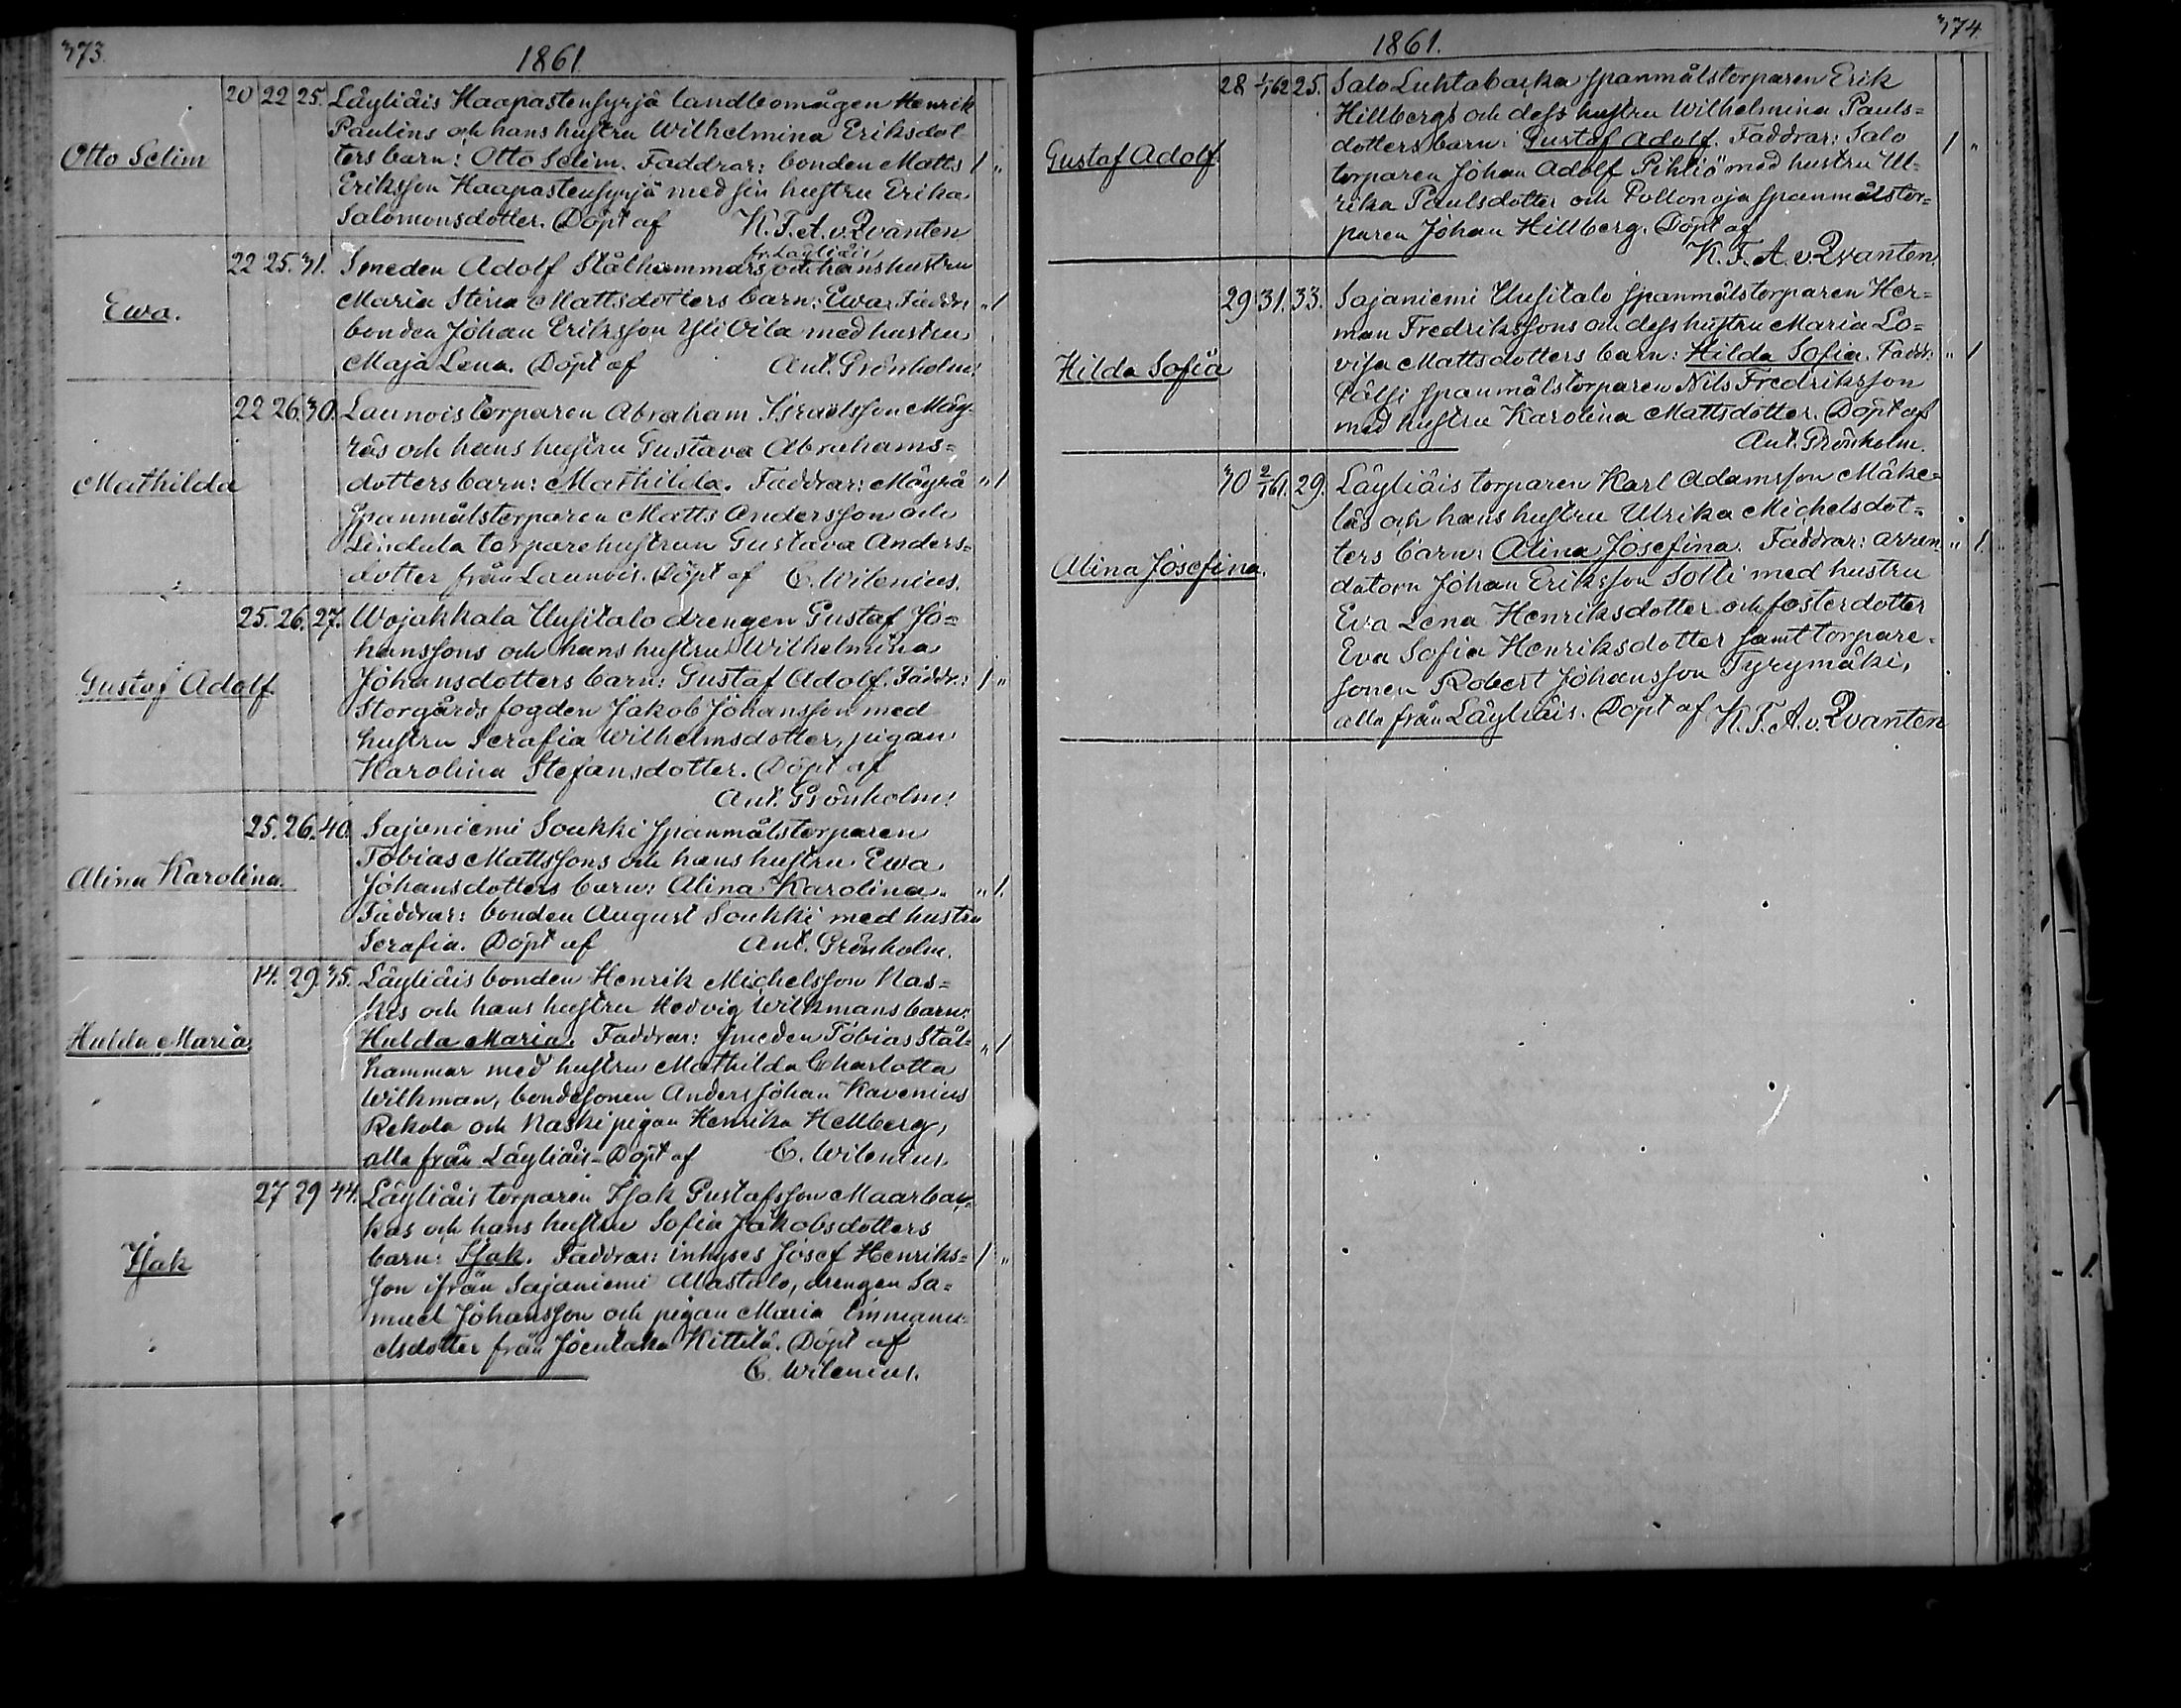 373.
1861
20 22 25. Läyliäis Haapastensyrjä landbomågen Henrik
Paulins och hans hustru Wilhelmina Eriksdot
Otto Selim
ters barn: Otto Selim. Faddrar: bonden Matts 1 "
Eriksson Haapastensyrjä med sin hustru Erika
Salomonsdotter. Döpt af K. F. A. v. Qvanten
fr. Läyliäis
22 25. 31. Smeden Adolf Stålhammars och hans hustru
Ewa.
Maria Stina Mattsdotters barn: Ewa. Faddr " 1
bonden Johan Eriksson Yli Oila med hustru
Maja Lena. Döpt af Ant. Grönholm.
22 26. 30. Launois torparen Abraham Israelsson Mäy-
räs och hans hustru Gustava Abrahams=
Mathilda
dotters barn: Mathilda. Faddrar: Mäyrä " 1
spanmålstorparen Matts Andersson och
Lindula torparehustrun Gustava Anders=
dotter från Launois. Döpt af C. Wilenius.
25. 26. 27. Wojakkala Uusitalo drengen Gustaf Jo=
hanssons och hans hustru Wilhelmina
Gustaf Adolf
Johansdotters barn: Gustaf Adolf. Faddr.: 1 "
Storgårds fogden Jakob Johansson med
hustru Serafia Wilhelmsdotter, pigan
Karolina Stefansdotter. Döpt af
Ant. Grönholm.
25. 26. 40. Sajaniemi Soukki spanmålstorparen
Tobias Mattssons och hans hustru Ewa
Alina Karolina.
Johansdotters barn: Alina Karolina. " 1.
Faddrar: bonden August Soukki med hustru
Serafia. Döpt af Ant. Grönholm.
14. 29. 35. Läyliäis bonden Henrik Michelsson Kas=
kis och hans hustru Hedvig Wilkmans barn:
Hulda Maria
Hulda Maria. Faddrar: smeden Tobias Stål= " 1
hammar med hustru Mathilda Charlotta
Wilkman, bondesonen Anders Johan Kavenius
Rekola och Kaski pigan Henrika Hellberg,
alla från Läyliäis – Döpt af C. Wilenius.
27 29 44. Läyliäis torparen Isak Gustafsson Maarbac-
kas och hans hustru Sofia Jakobsdotters
Isak
barn: Isak. Faddrar: inhyses Josef Henriks= 1 "
son ifrån Sajaniemi Alastalo, drengen Sa=
muel Johansson och pigan Maria Emmanu-
elsdotter från Joentaka Kittilä. Döpt af
C. Wilenius.
374.
1861.
28 1/1 62 25. Salo Luhtabacka spanmålstorparen Erik
Hillbergs och dess hustru Wilhelmina Pauls=
Gustaf Adolf
dotters barn: Gustaf Adolf. Faddrar: Salo 1 "
torparen Johan Adolf Pihliö med hustru Ul-
rika Paulsdotter och Pollonoja spanmålstor=
paren Johan Hillberg. Döpt af
K. F. A. v. Qvanten.
29 31. 33. Sajaniemi Uusitalo spanmålstorparen Her=
man Fredrikssons och dess hustru Maria Lo=
Hilda Sofia
visa Mattsdotters barn: Hilda Sofia. Faddr: " 1
Pälsi spanmålstorparen Nils Fredriksson
med hustru Karolina Mattsdotter. Döpt af
Ant. Grönholm.
30 2/1 61. 29. Läyliäis torparen Karl Adamsson Mäke=
läs och hans hustru Ulrika Michelsdot-
Alina Josefina.
ters barn: Alina Josefina. Faddrar: arren " 1.
datorn Johan Eriksson Solli med hustru
Eva Lena Henriksdotter och fosterdotter
Eva Sofia Henriksdotter samt torpare-
sonen Robert Johansson Tyrymäki,
alla från Läyliäis. Döpt af K. F. A. v. Qvanten